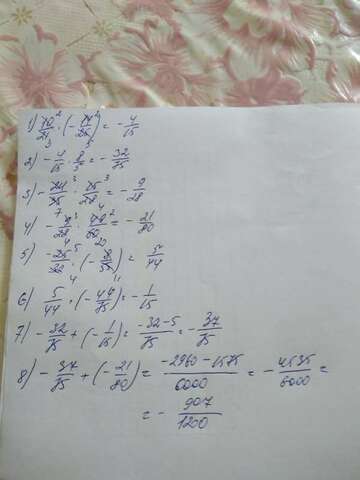 1) 10/21 · (-14/25) = -4/15
2) -4/15 · 8/5 = -32/75
3) -21/25 · 15/28 = -9/28
4) -9/28 · 49/60 = -21/80
5) -25/32 · (-8/55) = 5/44
6) 5/44 · (-44/75) = -1/15
7) -32/75 + (-1/15) = -32-5/75 = -37/75
8) -37/75 + (-21/80) = -2960-1575/6000 = -4535/6000 =
= -907/1200